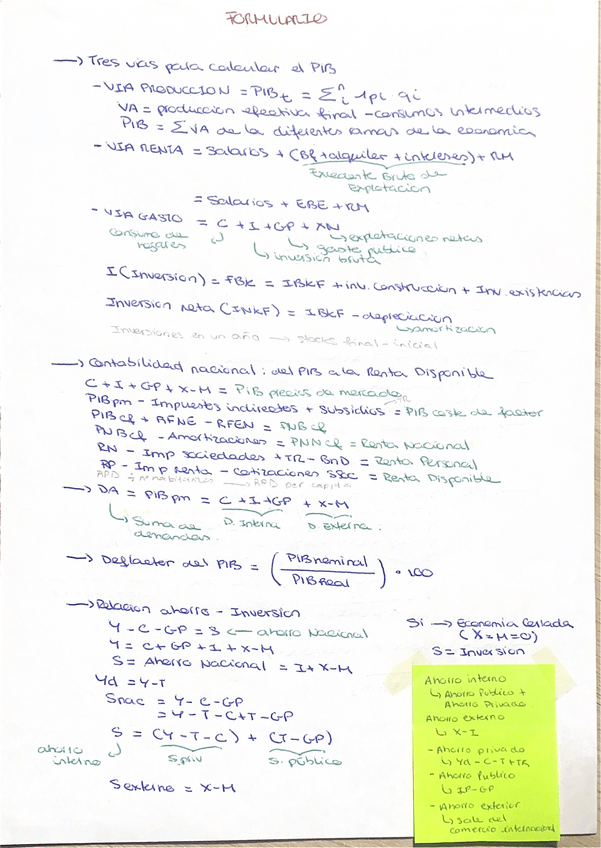 FORMULARIO
→ Tres vias para calcular el PIB
- VIA PRODUCCION = PIBt = Σ n i 1pi qi
VA = produccion efectiva final - consumos intermedios
PIB = Σ VA de la diferentes ramas de la economica
- VIA RENTA = Salarios + (Bf + alquiler + intereses) + RM
Excedente Bruto de
Explotacion
= Salarios + EBE + RM
- VIA GASTO = C + I + GP + XN
consumo de
hogares
↳ explotaciones netas
↳ gasto publico
↳ inversion bruta
I (Inversion) = FBK = IBKF + inv. construccion + Inv. existencias
Inversion neta (INKF) = IBKF - depreciacion
↳ amortizacion
Inversiones en un año → stocks final - inicial
→ Contabilidad nacional: del PIB a la Renta Disponible
C + I + GP + X - M = PIB precios de mercado
PIBpm - Impuestos indirectos + subsidios = PIB coste de factor
PIBcf + RFNE - RFEN = PNBcf
PNBcf - Amortizaciones = PNNcf = Renta Nacional
RN - Imp sociedades + TR - BnD = Renta Personal
RP - Imp Renta - Cotizaciones SSC = Renta Disponible
RPD ÷ nº habitantes → RPD per capita
→ DA = PIBpm = C + I + GP + X - M
↳ Suma de
demandas
D. Interna
D. Externa.
→ Deflactor del PIB = (PIBnominal / PIBReal) · 100
→ Relacion ahorro - Inversion
Y - C - GP = S ← ahorro Nacional
Y = C + GP + I + X - M
S = Ahorro Nacional = I + X - M
Yd = Y - T
Snac = Y - C - GP
= Y - T - C + T - GP
S = (Y - T - C) + (T - GP)
ahorro
interno
S.priv
S. público
Sexterno = X - M
Si → Economia Cerrada
(X = M = 0)
S = Inversion
Ahorro interno
↳ Ahorro Publico +
Ahorro Privado
Ahorro externo
↳ X - I
- Ahorro privado
↳ Yd - C - T + TR
- Ahorro Publico
↳ IP - GP
- Ahorro exterior
↳ Sale del
comercio internacional